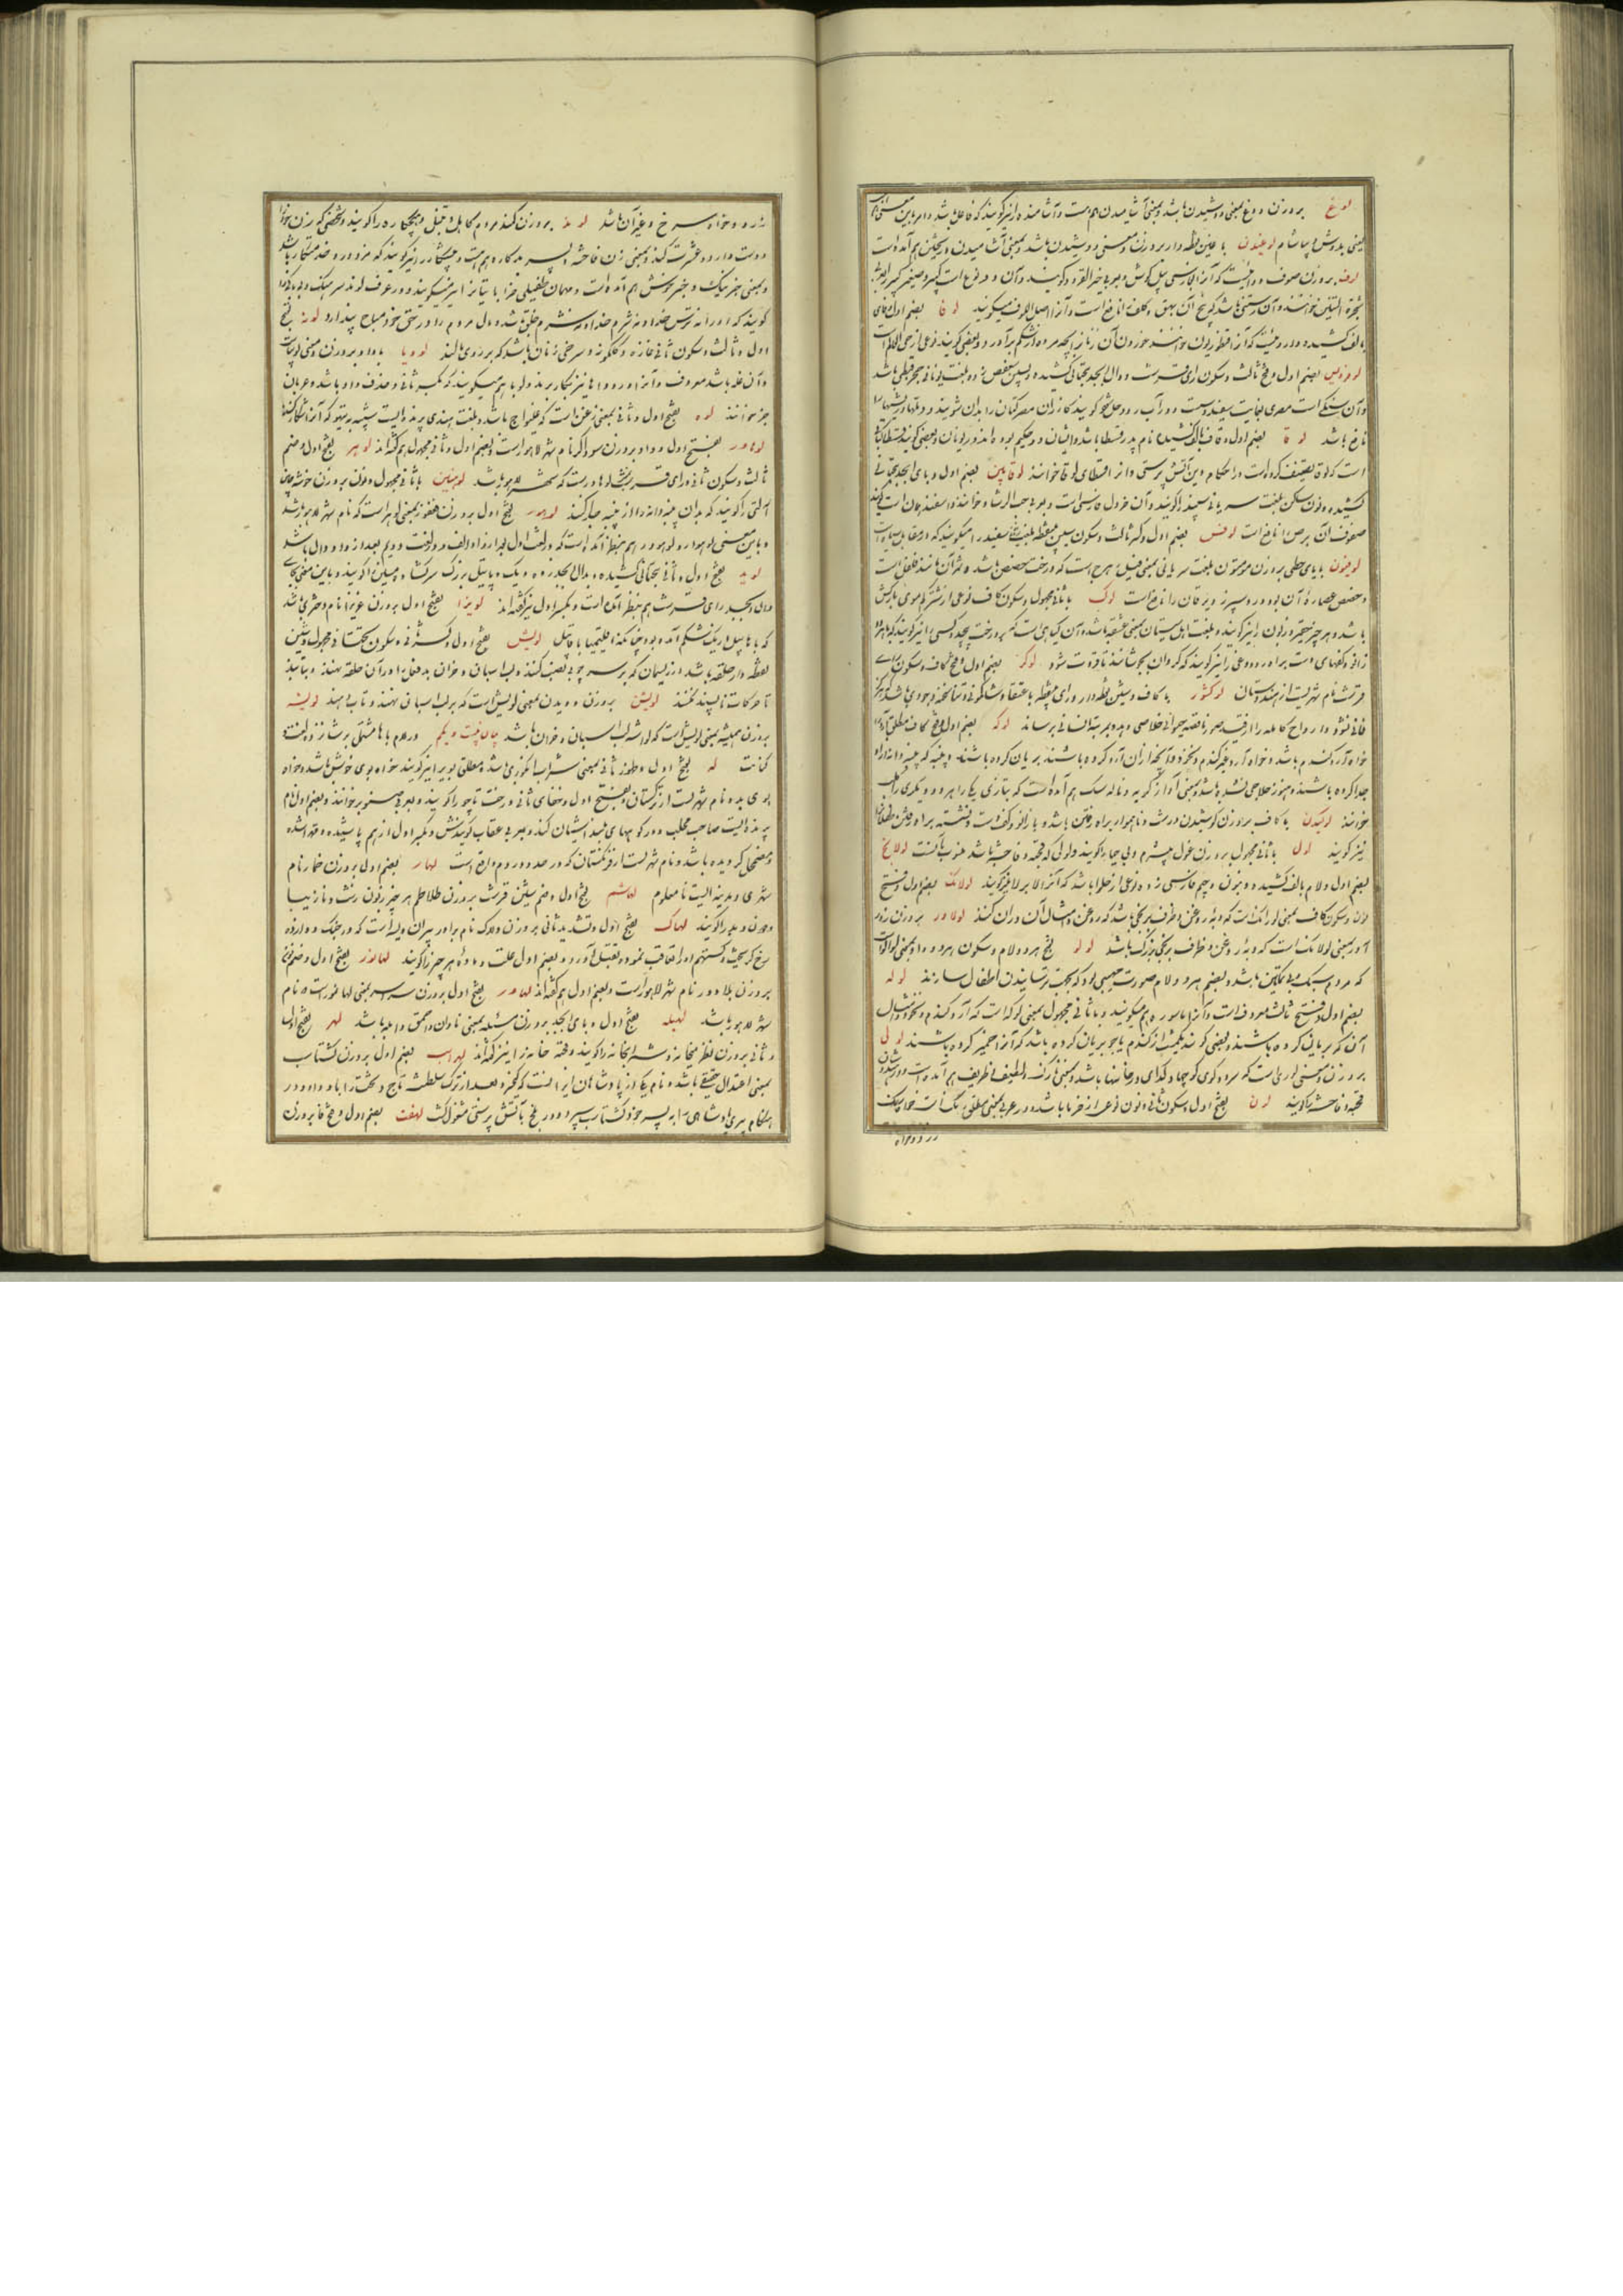 لوغ بروزن دوغ بمعنی دوشیدن باشد و بمعنی آشامیدن هم هست و آشامنده را نیز گویند که فاعل باشد و امر باین معنی هم
یعنی بدوش و بیاشام لوغیدن با غین نقطه دار بروزن و معنی دوشیدن باشد و بمعنی آشامیدن و ریختن هم آمده است
لوف بروزن صوف دوائیست که آنرا بفارسی پیل گوش و بعربی خبز القرود گویند و آن دو نوع است کبیر و صغیر کبیر را
شجرة التنین خوانند و آن رستنی باشد که بیخ آن بهق و کلف را نافع است و آنرا اصل اللوف میگویند لوفا بضم اول و فای
بالف کشیده داروئیست که آنرا قنطوریون خوانند خوردن آن زنانرا بچه مرده از شکم برآورد و بعضی گویند نوعی از حی العالم است
لوفردیس بضم اول و فتح ثالث و سکون رای قرشت و دال ابجد بتحتانی کشیده و بسین سعفص زده بلغت یونانی حجر قبطی باشد
و آن سنگی است مصری بغایت سفید و سست و در آب زود حل شود گویند کازران مصر کتان را بدان شویند و
نافع باشد لوقا بضم اول و قاف بالف کشیده نام پدر قسطا باشد و ایشان دو حکیم بوده اند در یونان و بعضی گویند قسطا کتابی
است که لوقا تصنیف کرده است در احکام دین آتش پرستی و آنرا قسطای لوقا خوانند لوقابین بضم اول و بای ابجد بتحتانی
کشیده و نون ساکن بلغت سریانی سپند را گویند و آن خردل فارسی است و بعربی حب الرشاد خوانند و اسفند همان است
ضماد آن برص را نافع است لوقس بضم اول و کسر ثالث و سکون سین بی نقطه بلغت سفید را میگویند که در مقابل سیاه است
لوقیون با یای حطی بروزن موستون بلغت سریانی بمعنی فیلزهرج است که درخت حضض باشد و ثمر آن مانند فلفل است
و حضض عصاره آن بود و ورم سپرز و یرقان را نافع است لوک با ثانی مجهول و سکون کاف نوعی از شتر کم موی بارکش
باشد و هر چیز حقیر و زبون را نیز گویند و بلغت اهل سیستان بمعنی عشقه باشد و آن گیاهی است که بر درخت پیچد و کسی را نیز گویند که با هر دو
زانو و کفهای دست براه رود و دوغی را نیز گویند که گردان بجوشانند تا قروت شود لوکر بضم اول و فتح کاف و سکون رای
قرشت نام شهریست از هندوستان لوکشور با کاف و شین نقطه دار و رای بی نقطه باعتقاد
فانی نشود و ارواح کامله را از قید صور ناقصه حیوانی خلاصی دهد و بمرتبه انسانی برساند لوکه بضم اول و فتح کاف مطلق آرد را گویند
خواه آرد گندم باشد و خواه آرد غیر گندم و نخود و آنچه از آن آرد کرده باشند بریان کرده باشند و پنبه که پنبه دانه را از آن
جدا کرده باشند و هنوز حلاجی نشده باشد و بمعنی آواز گریه و ناله سگ هم آمده است که بتازی یکی را هریر و دیگری را کلب
خوانند لوکیدن با کاف بروزن کوشیدن درشت و ناهموار براه رفتن باشد و با زانو و کف دست و نشسته براه رفتن طفلان را
نیز گویند لول با ثانی مجهول بروزن غول بیشرم و بی حیا را گویند و لولی که قحبه و فاحشه باشد منسوب بآنست لولانج
بضم اول و لام بالف کشیده و بنون و جیم فارسی زده نوعی از حلوا باشد که آنرا لابرلا نیز گویند لولانک بضم اول و فتح
نون و سکون کاف بمعنی لورانک است که دبه روغن و ظرف برنجی باشد که روغن و امثال آن در آن کنند لولاور بروزن زور
آور بمعنی لولانک است که دبه روغن و ظرف برنجی بزرگ باشد لولو بفتح هر دو لام و سکون هر دو واو بمعنی
که مردم سبک بی تمکین باشد و بضم هر دو لام صورت مهیبی بود که بجهت ترسانیدن اطفال سازند لوله
بضم اول و فتح ثالث معروف است و آنرا ماسوره هم میگویند و با ثانی مجهول بمعنی لوکه است که آرد گندم و نخود و امثال
آن که بریان کرده باشند و بعضی گویند یک مشت از گندم یا جو بریان کرده باشد که آنرا خمیر کرده باشند لولی
بروزن و معنی لوری است که سرود گوی کوچها و گدای در خانها باشد و بمعنی نازک و لطیف و ظریف هم آمده است و در هندوستان
قحبه و فاحشه را گویند لون بفتح اول و سکون ثانی و نون نوعی از خرما باشد و در عربی بمعنی مطلق رنگ است خواه سیاه
زرد و خواه
زرد و خواه سرخ و غیر آن باشد لوند بروزن کمند مردم کاهل و تنبل و هیچکاره را گویند و شخصی که زن خود را
دوست دارد و عشرت کند و بمعنی زن فاحشه و پسر بدکاره هم هست و پیشکار را نیز گویند که مزدور و خدمتکار باشد
و بمعنی خبر نیک و خبر خوش هم آمده است و مهمان طفیلی خرابات را نیز میگویند و در عرف لوند سرهنگ و بی باکی را
گویند که او را نه ترس خدا و نه شرم خدا و نه شرم خلق باشد و مال مردم را در حق خود مباح پندارد لونه بفتح
اول و ثالث و سکون ثانی غازه و گلگونه و سرخی زنان باشد که بر روی مالند لوویا با واو بروزن و معنی لوبیاست
و آن غله باشد معروف و آنرا در دواها نیز بکار برند و لوبا هم میگویند که بکسر ثانی و حذف واو باشد و عربان
جز خوانند لوه بفتح اول و ثانی بمعنی زغن است که غلیواج باشد و بلغت هندی پرنده ایست شبیه به تیهو که آنرا شکار کنند
لوهاور بفتح اول و واو بروزن سوداگر نام شهر لاهور است و بضم اول و ثانی مجهول هم گفته اند لوهر بفتح اول و ضم
ثالث و سکون ثانی و رای قرشت لوهاور است که شهر لاهور باشد لوهنین با ثانی مجهول و نون بروزن خوشه چین
آلتی را گویند که بدان پنبه دانه را از پنبه جدا کنند لوهور بفتح اول بروزن فغفور بمعنی لوهر است که نام شهر لاهور باشد
و باین معنی لوهاور و لوهوور هم بنظر آمده است که در لغت اول بعد از واو الف و در لغت دویم بعد از واو دال باشد
لوید بفتح اول و ثانی بتحتانی کشیده و بدال ابجد زده دیگ و پاتیل بزرگ سرگشاده مسین را گویند و باین معنی بجای
دال ابجد رای قرشت هم بنظر آمده است و بکسر اول نیز گفته اند لویزا بفتح اول بروزن عزیزا نام دختری باشد
که با هابیل در یک شکم آمده بود چنانکه اقلیمیا با قابیل لویش بفتح اول و کسر ثانی و سکون تحتانی مجهول و شین
نقطه دار حلقه باشد از ریسمان که بر سر چوبی نصب کنند و لب اسبان و خران بدفعل را در آن حلقه نهند و بتابند
تا حرکات ناپسند نکنند لویشن بروزن دویدن بمعنی لویش است که بر لب اسبان نهند و تاب دهند لویشه
بروزن همیشه بمعنی لویش است که لواشه لب اسبان و خران باشد بیان بیست و یکم در لام با ها مشتمل بر شانزده لغت و
کنایت له بفتح اول و ظهور ثانی بمعنی شراب انگوری باشد و مطلق بوی را نیز گویند خواه بوی خوش باشد و خواه
بوی بد و نام شهریست از ترکستان و بفتح اول و خفای ثانی درخت ناجو را گویند و بعربی صنوبر خوانند و بضم اول نام
پرنده ایست صاحب مخلب و در کوههای بلند آشیان کند و بعربی عقاب گویندش و بکسر اول از هم پاشیده و
و مضمحل گردیده باشد و نام شهریست از فرنگستان که در حدود روم واقع است لهار بضم اول بروزن خمار نام
شهری و مدینه ایست نامعلوم لهاشم بفتح اول و ضم شین قرشت بروزن طلاطم هر چیز زبون زشت و نازیبا
و دون و بد را گویند لهاک بفتح اول و تشدید ثانی بروزن دلاک نام برادر پیران ویسه است که در جنگ دوازده
رخ گریخت و گستهم او را تعاقب نموده بقتل آورد و بضم اول علت و ماده هر چیز را گویند لهانور بفتح اول و ضم نون
بروزن بلادور نام شهر لاهور است و بضم اول هم گفته اند لهاور بفتح اول بروزن سراسر بمعنی لهانور است و نام
شهر لاهور باشد لهبله بفتح اول و بای ابجد بروزن مسئله بمعنی نادان و احمق و ابله باشد لهر بفتح اول
و ثانی بروزن نظر میخانه و شرابخانه را گویند و قحبه خانه را نیز گفته اند لهراسب بضم اول بروزن گشتاسب
بمعنی اعتدال حقیقی باشد و نام یکی از پادشاهان ایرانست که کیخسرو بعد از ترک سلطنت تاج و تخت را باو داد و در
هنگام پیری پادشاهی را به پسر خود گشتاسب سپرد و در بلخ بآتش پرستی مشغول گشت لهفت بضم اول و فتح فا بروزن